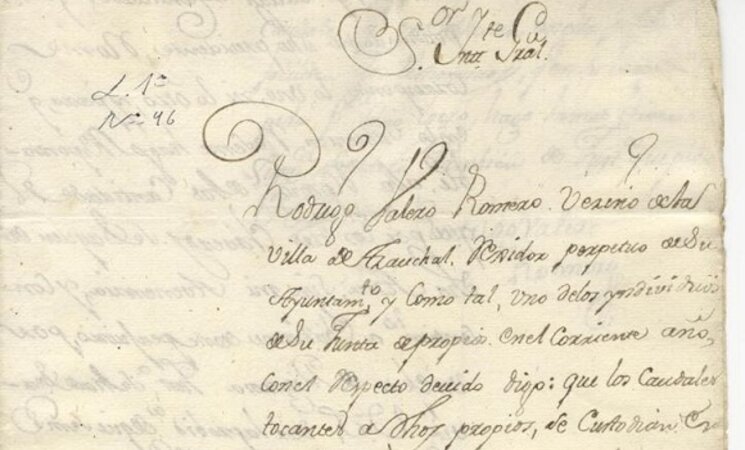 S.or Yn.te
Gral.
L. 1º
Nº 46
Rodrigo Valero Romero. Vezino de la
Villa de Azauchal. Rexidor perpetuo de Su
Ayuntam.to y Como tal, uno de los yndividuos
de Su Junta de propios. en el Corriente año,
con el Respecto devido digo: que los Caudales
tocantes a dhos propios, se Custodian en